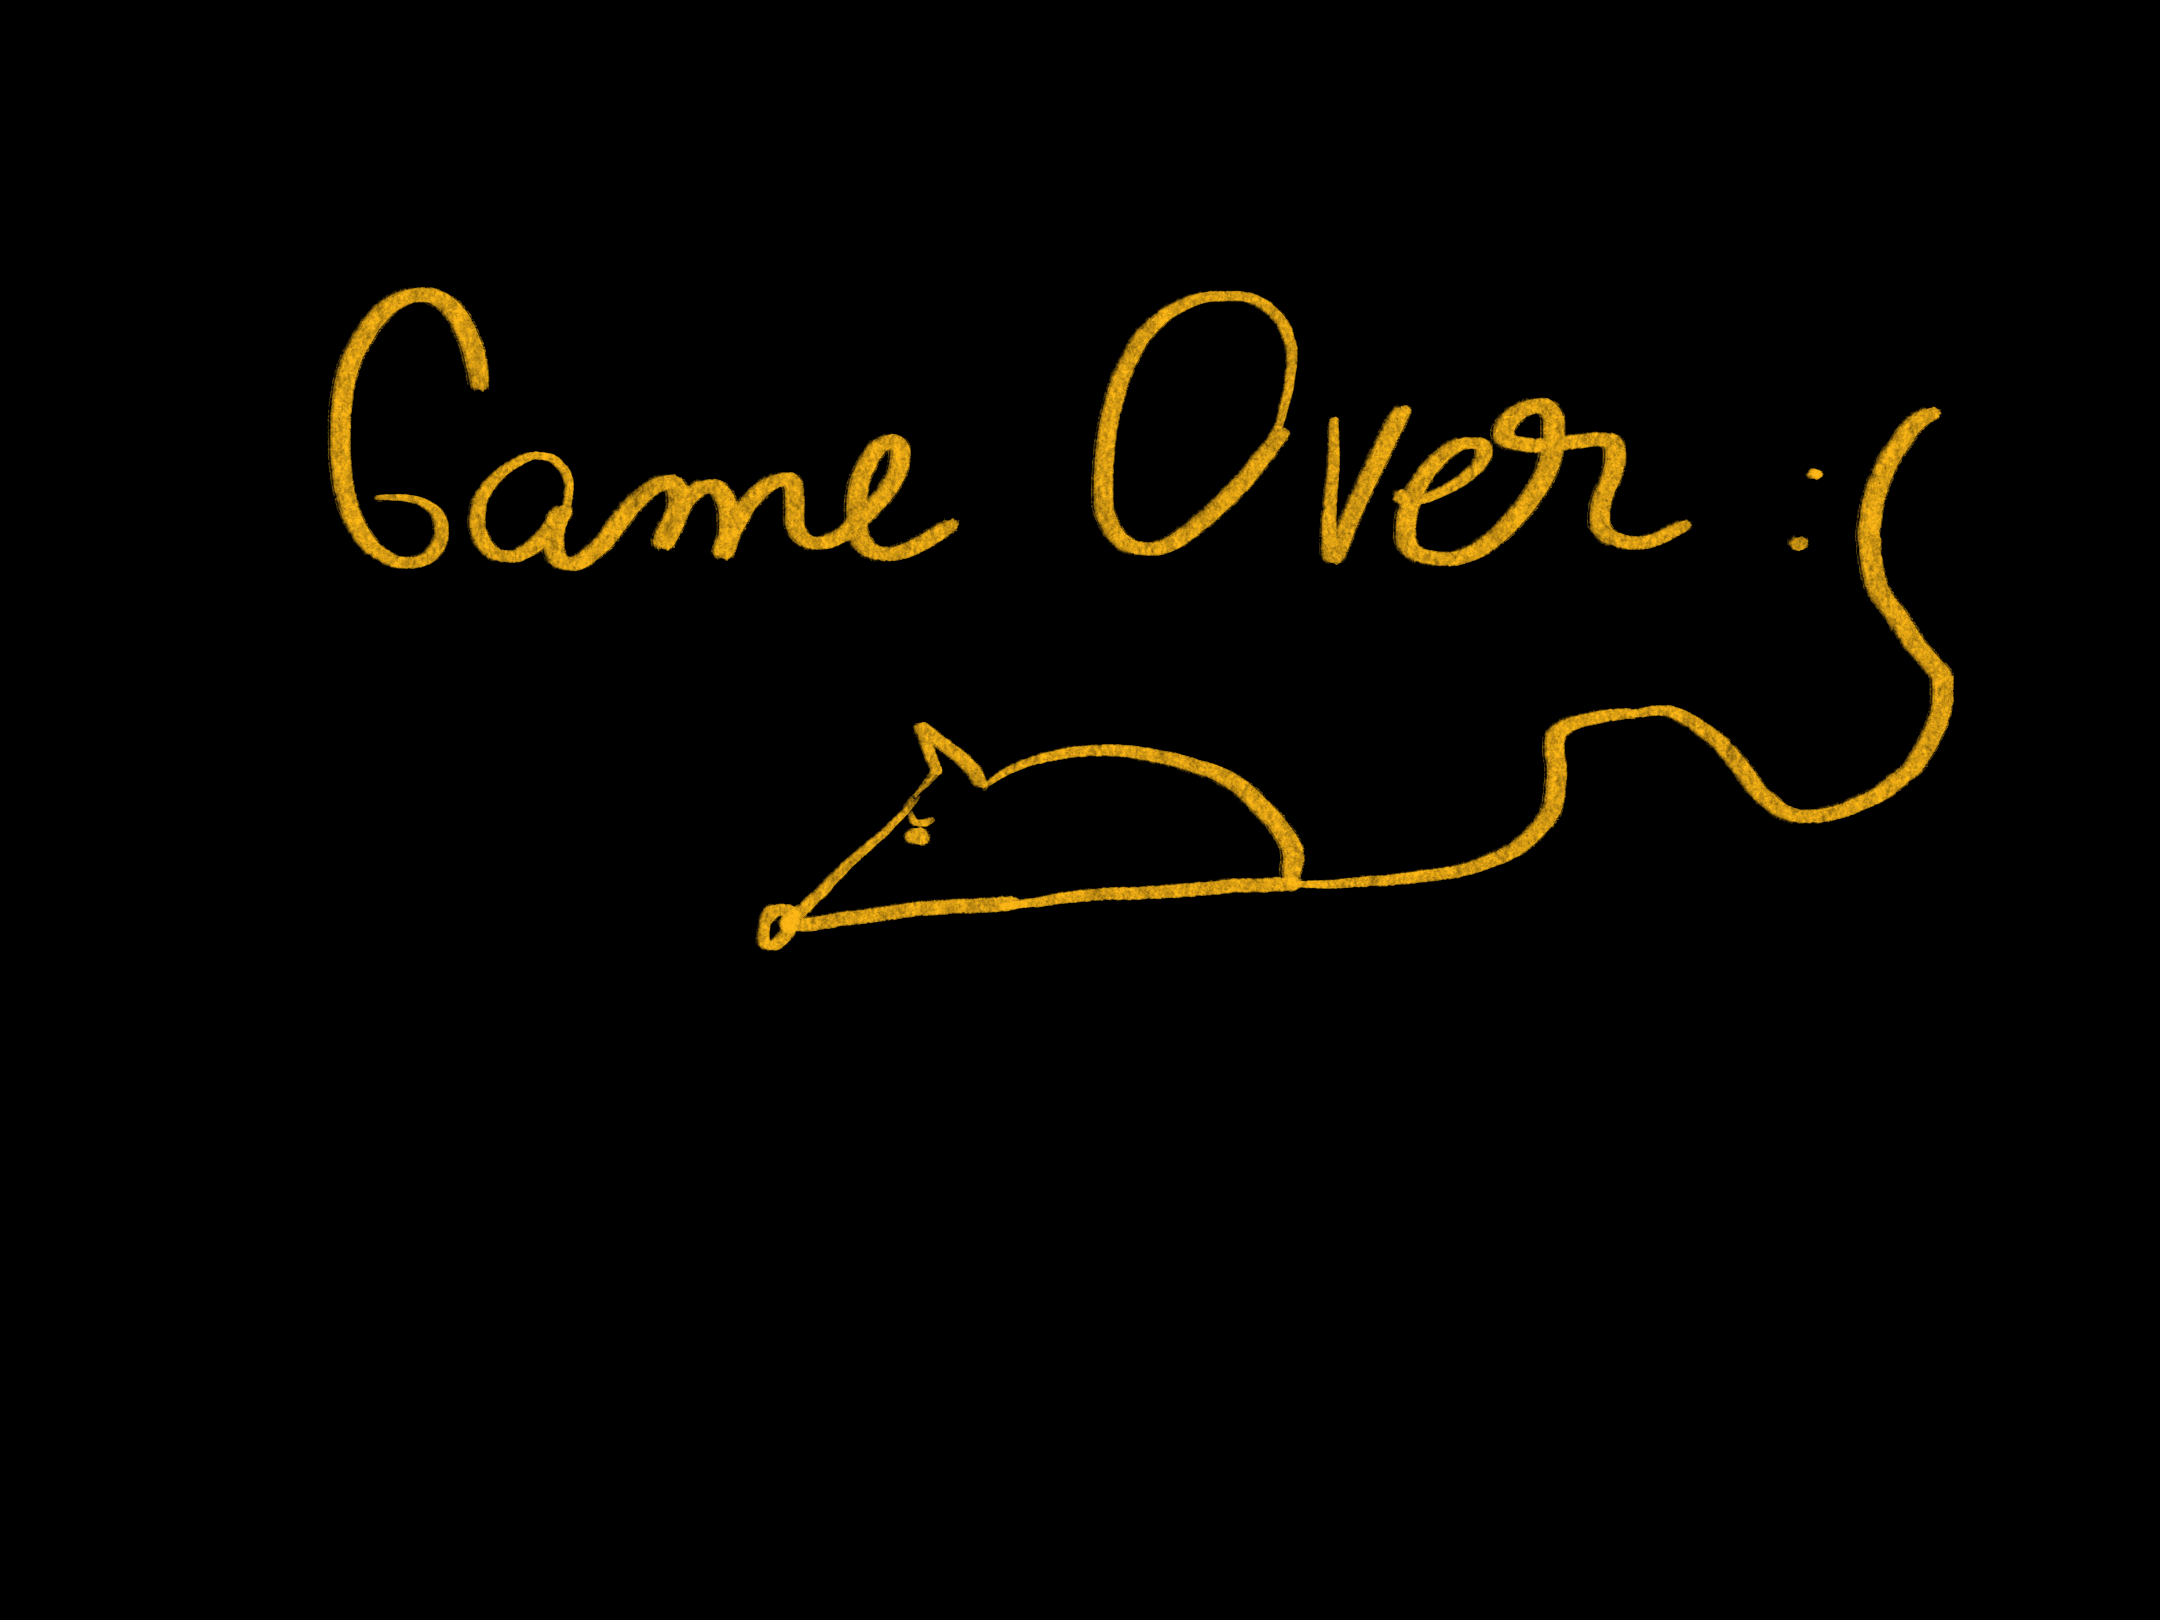 Game Over :(